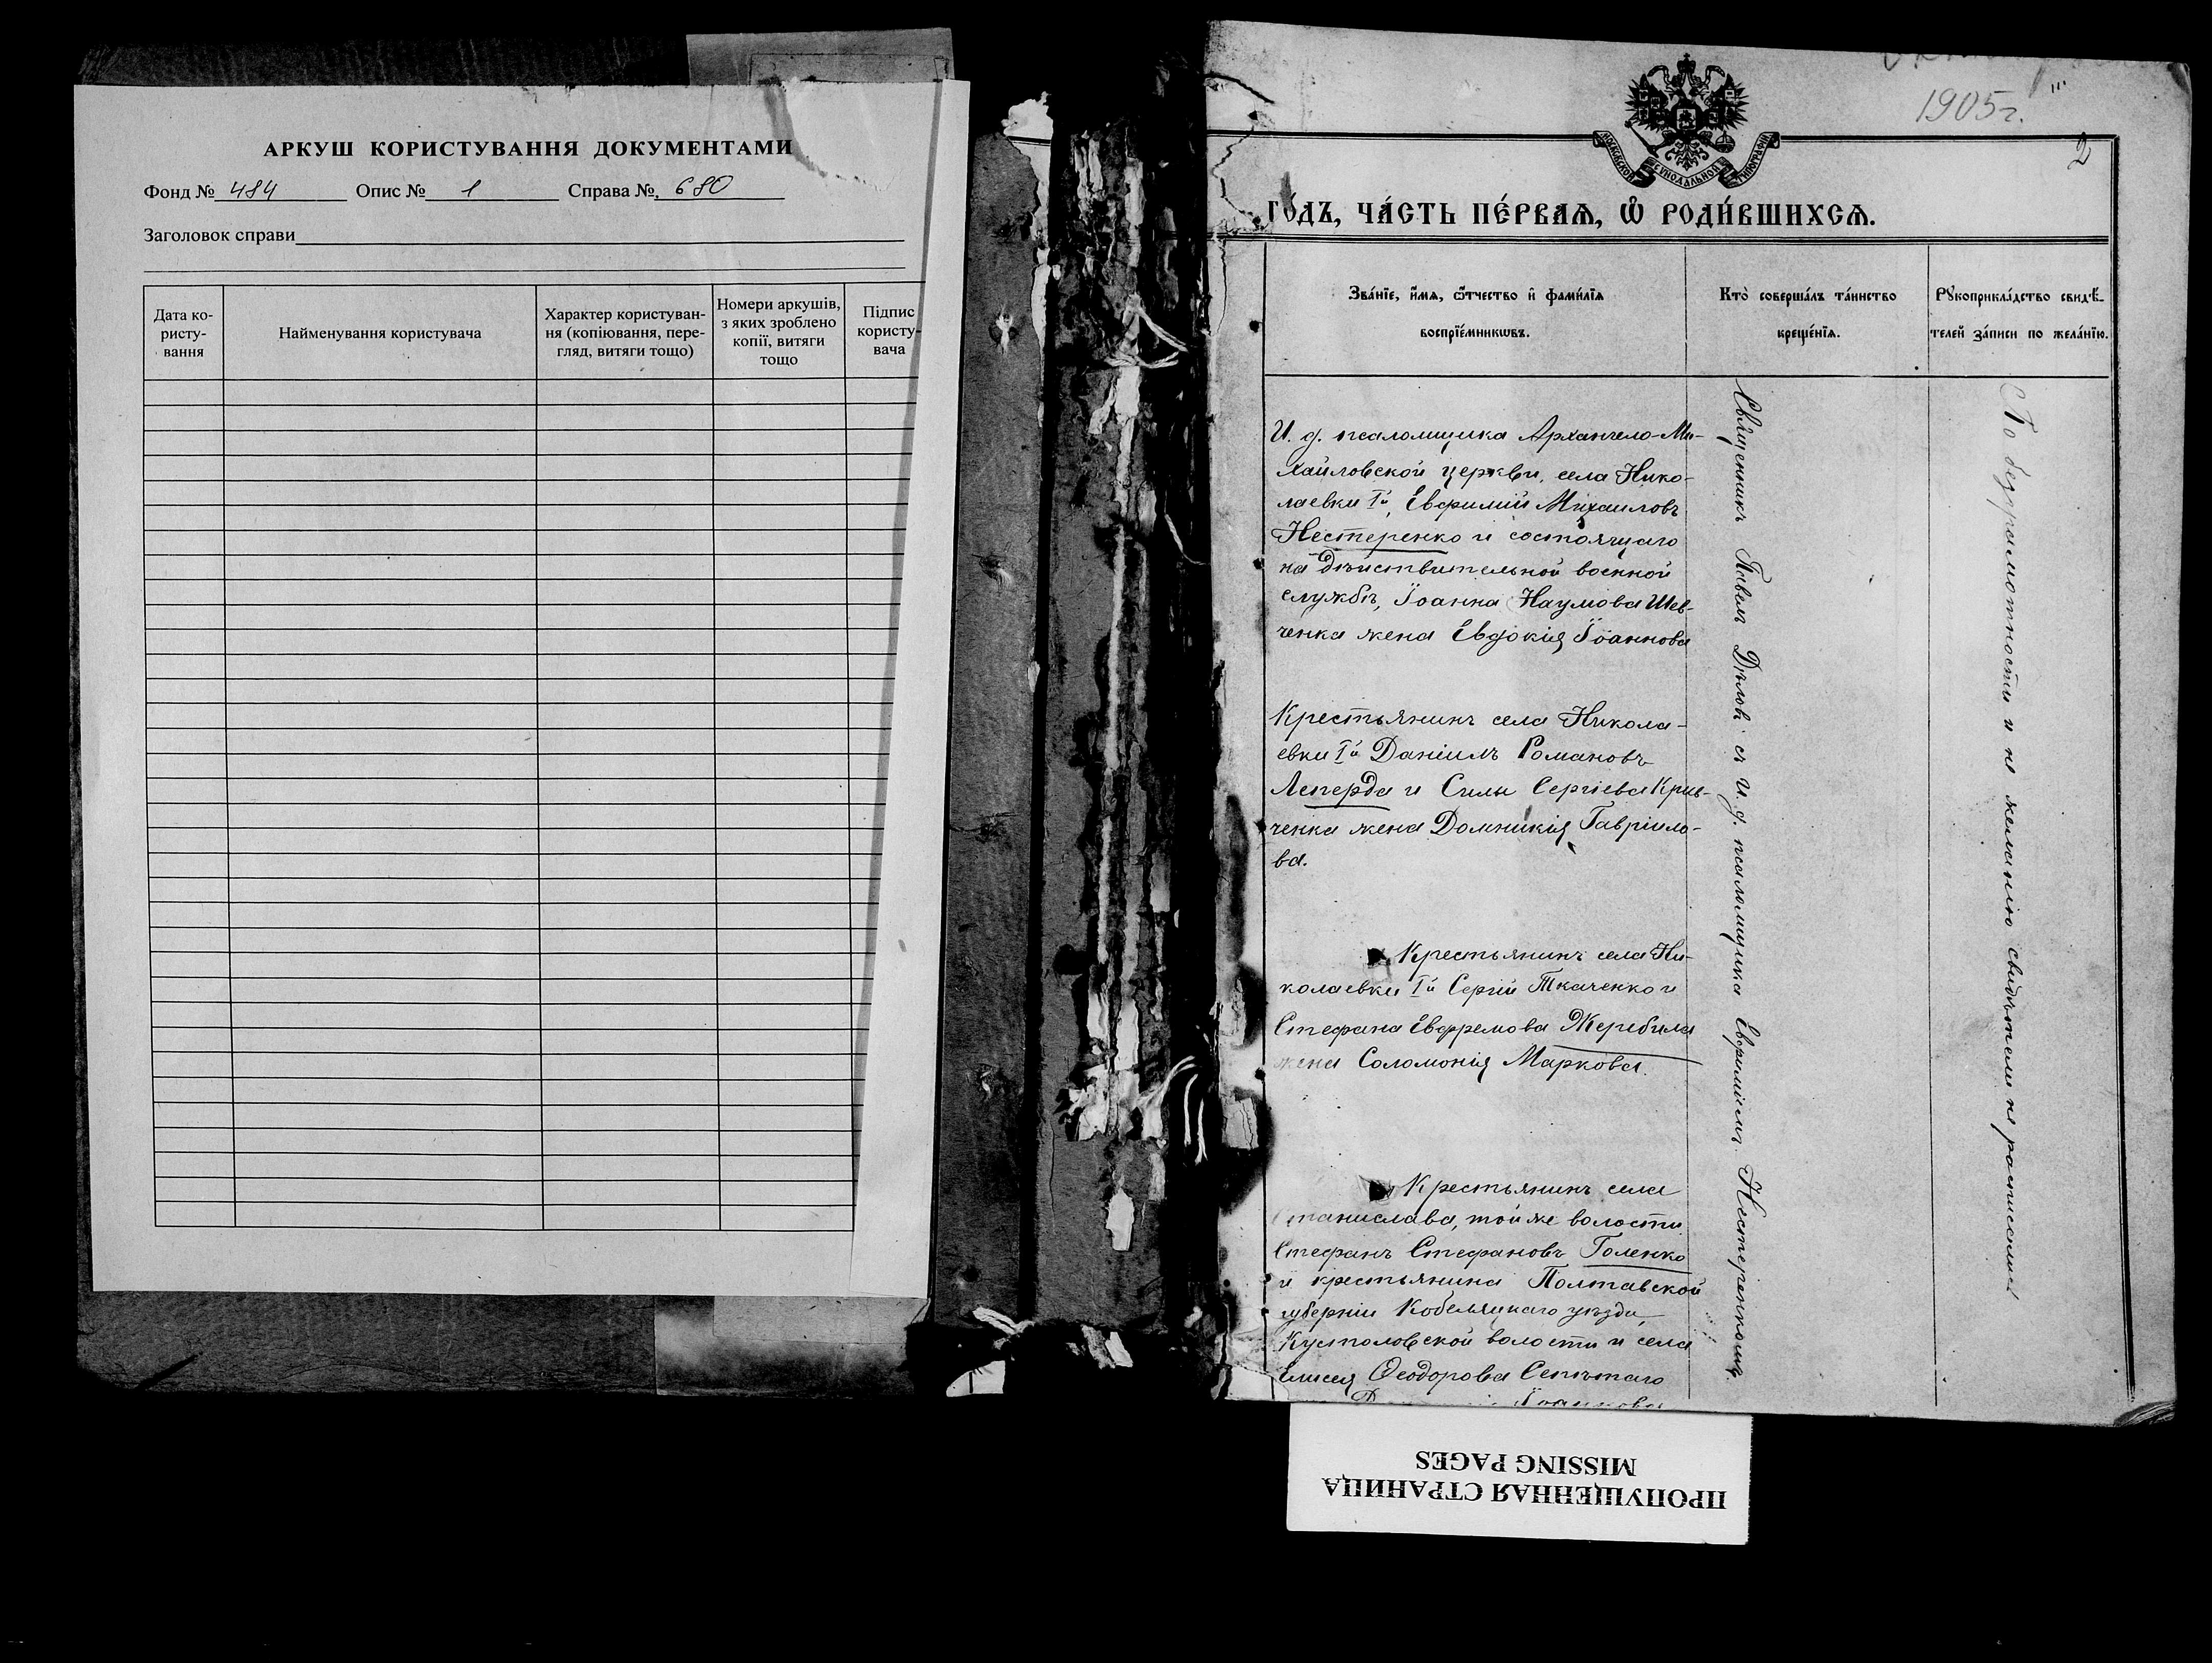 АРКУШ КОРИСТУВАННЯ ДОКУМЕНТАМИ
Фонд № 484 Опис № 1 Справа № 680
Заголовок справи
Дата ко-
ристу-
вання
Найменування користувача
Характер користуван-
ня (копіювання, пере-
гляд, витяги тощо)
Номери аркушів,
з яких зроблено
копії, витяги
тощо
Підпис
користу-
вача
1905 г.
2
МОСКОВСКОЙ СѴНОДАЛЬНОЙ ТИПОГРАФІИ
ГО́ДЪ, ЧА́СТЬ ПЕ́РВАѦ, Ѿ РОДИ́ВШИХСѦ.
Зва́нїе, и҆́мѧ, ѻ҆́тчество и҆ фами́лїѧ
воспрїе́мникѡвъ.
Кто̀ соверша́лъ та́инство
креще́нїѧ.
Рꙋкоприкла́дство свидѣ́-
телей за́писи по жела́нїю.
И. д. псаломщика Архангело-Ми-
хайловской церкви, села Нико-
лаевки Iй, Евфимій Михаиловъ
Нестеренко и состоящаго
на дѣйствительной военной
службѣ, Іоанна Наумова Шев-
ченка жена Евдокія Іоаннова
Крестьянинъ села Никола-
евки Iй Даніилъ Романовъ
Леперда и Силы Сергіева Крив-
ченка жена Домникія Гавріило-
ва.
Крестьянинъ села Ни-
колаевки Iй Сергій Ткаченко и
Стефана Евфремова Жеребила
жена Соломонія Маркова.
Крестьянинъ села
Станислава, той же волости
Стефанъ Стефановъ Голенко
и крестьянина Полтавской
губерніи Кобелякскаго уѣзда,
Кустоловской волости и села
Елисея Ѳеодорова
Іоаннова
Священникъ Павелъ Дѣловъ съ И. д. псаломщика Евфиміемъ Нестеренкомъ
По безграмотности и не желанію свидѣтели не расписались
ПРОПУЩЕННАЯ СТРАНИЦА
MISSING PAGES